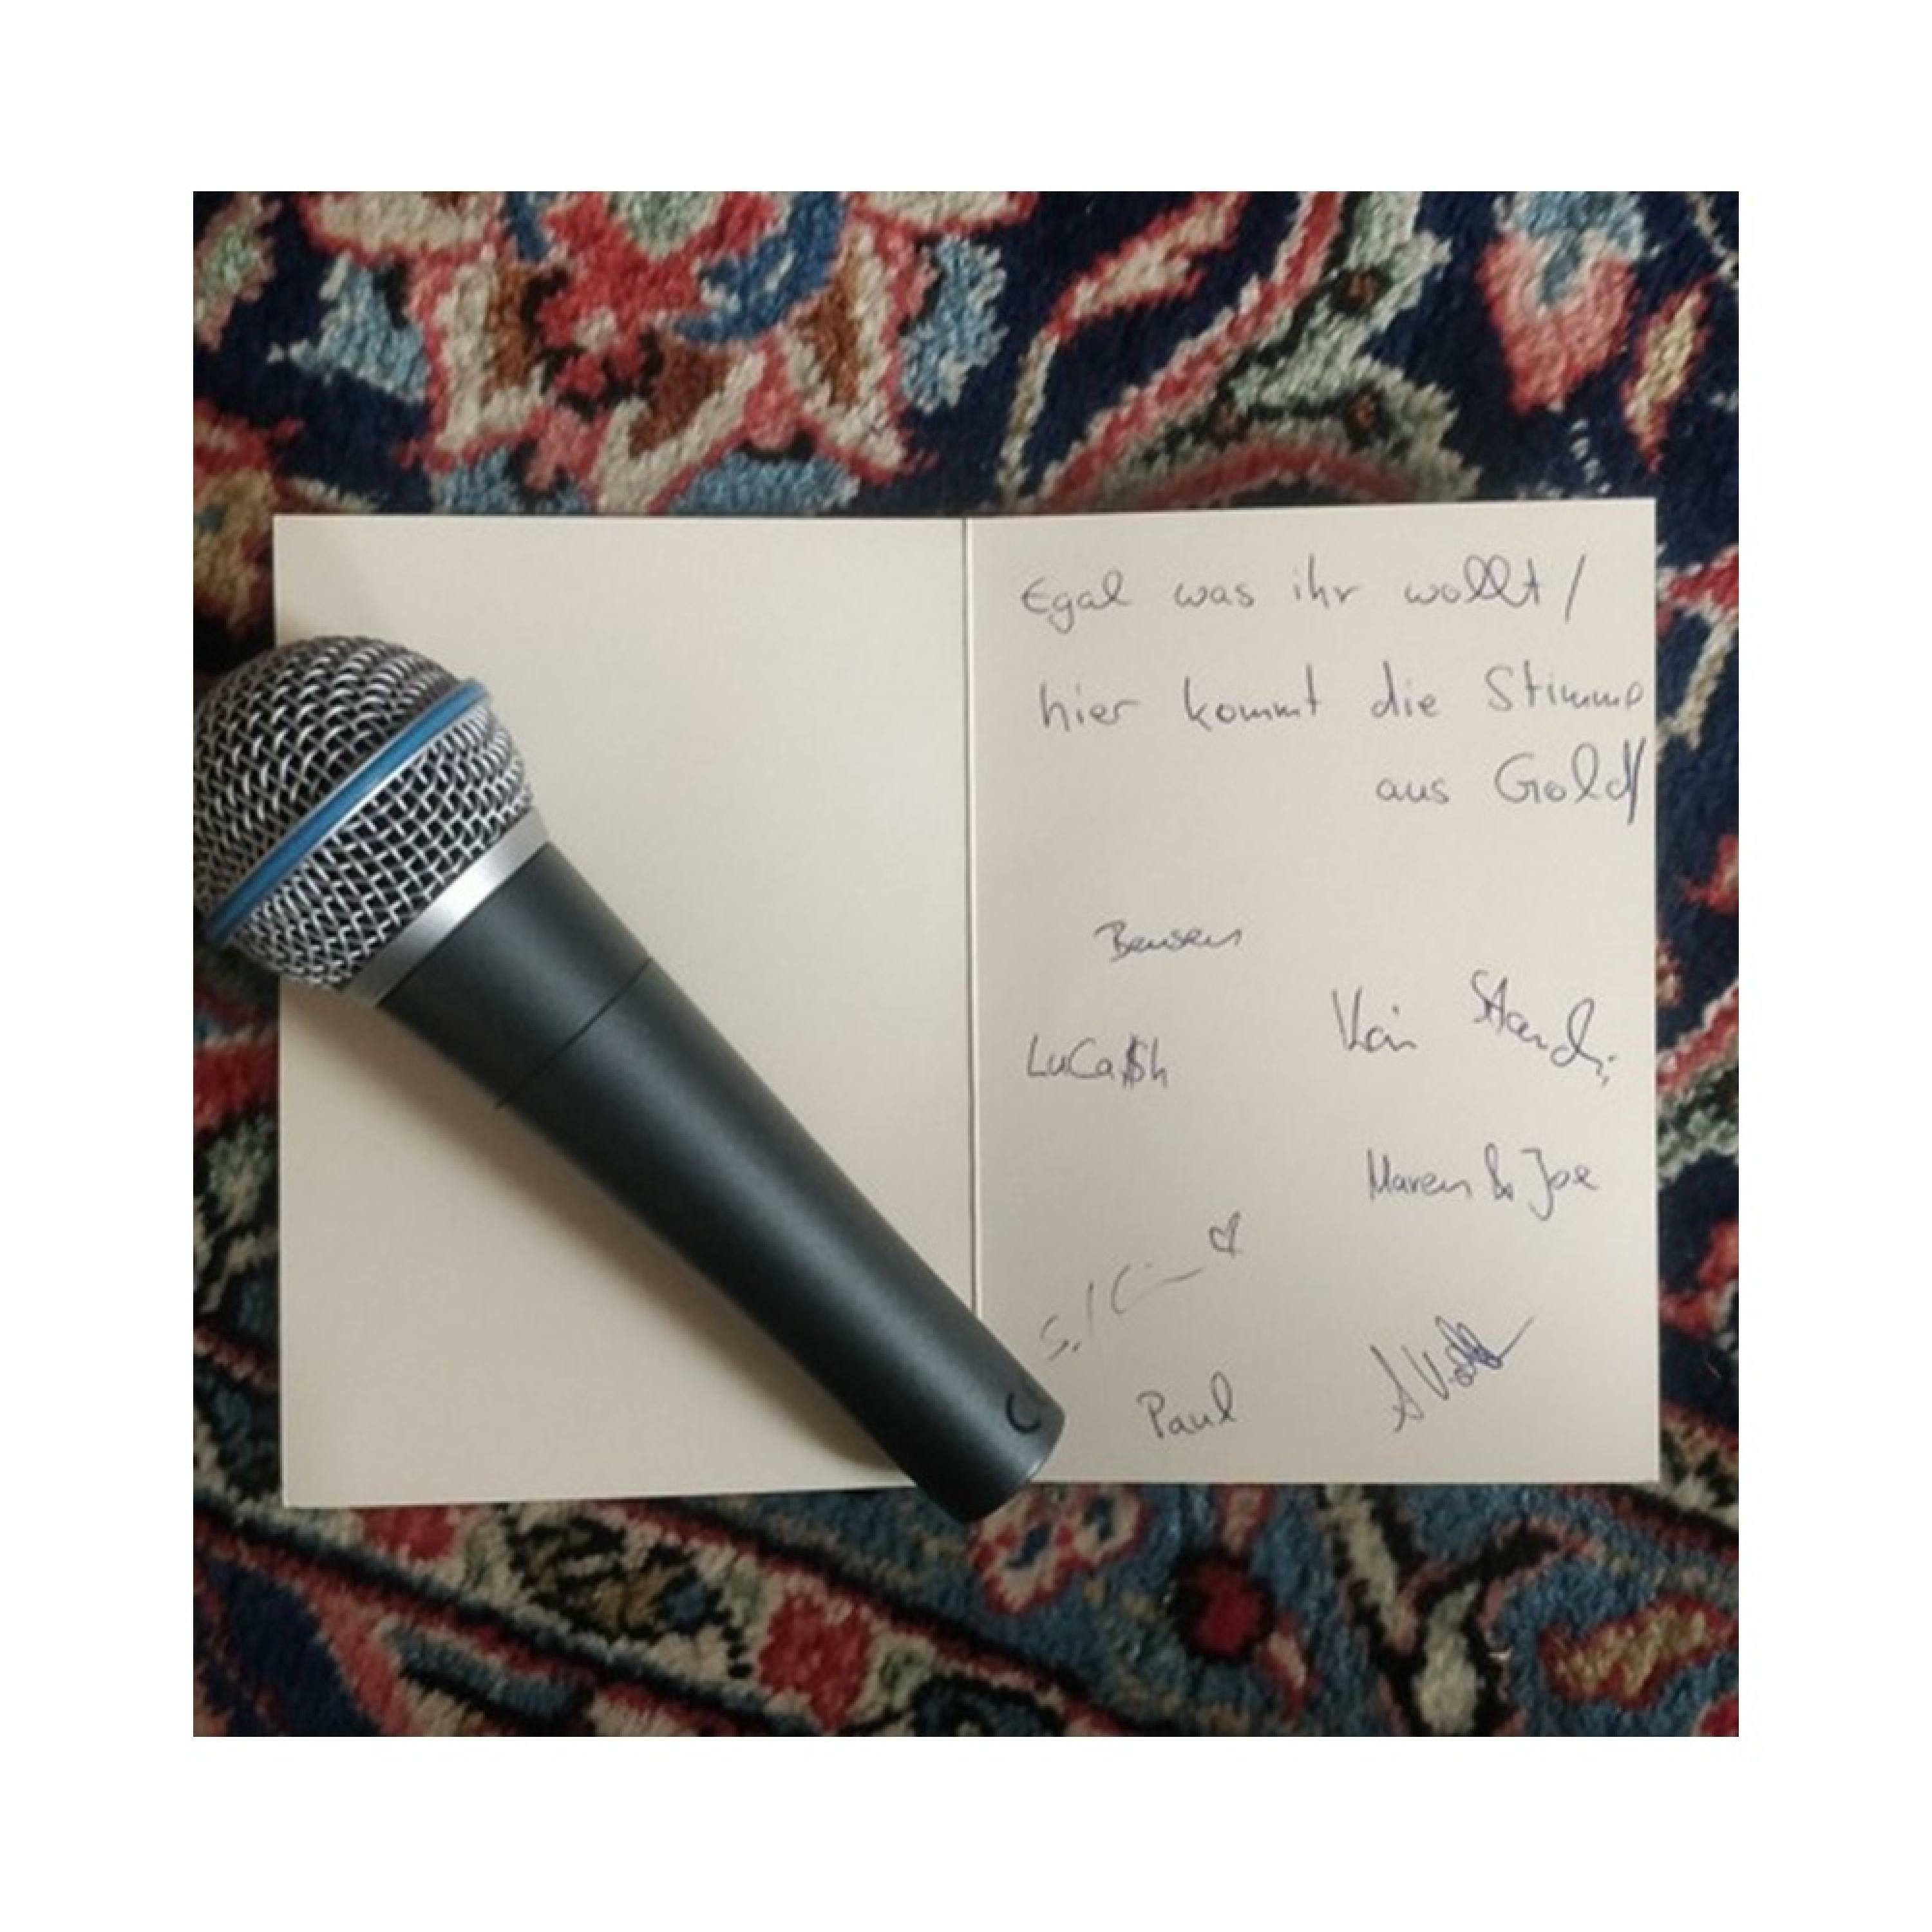 Egal was ihr wollt /
hier kommt die Stimme
aus Gold/
Bensen
LuCa$h
Kai
Maren & Joe
Paul